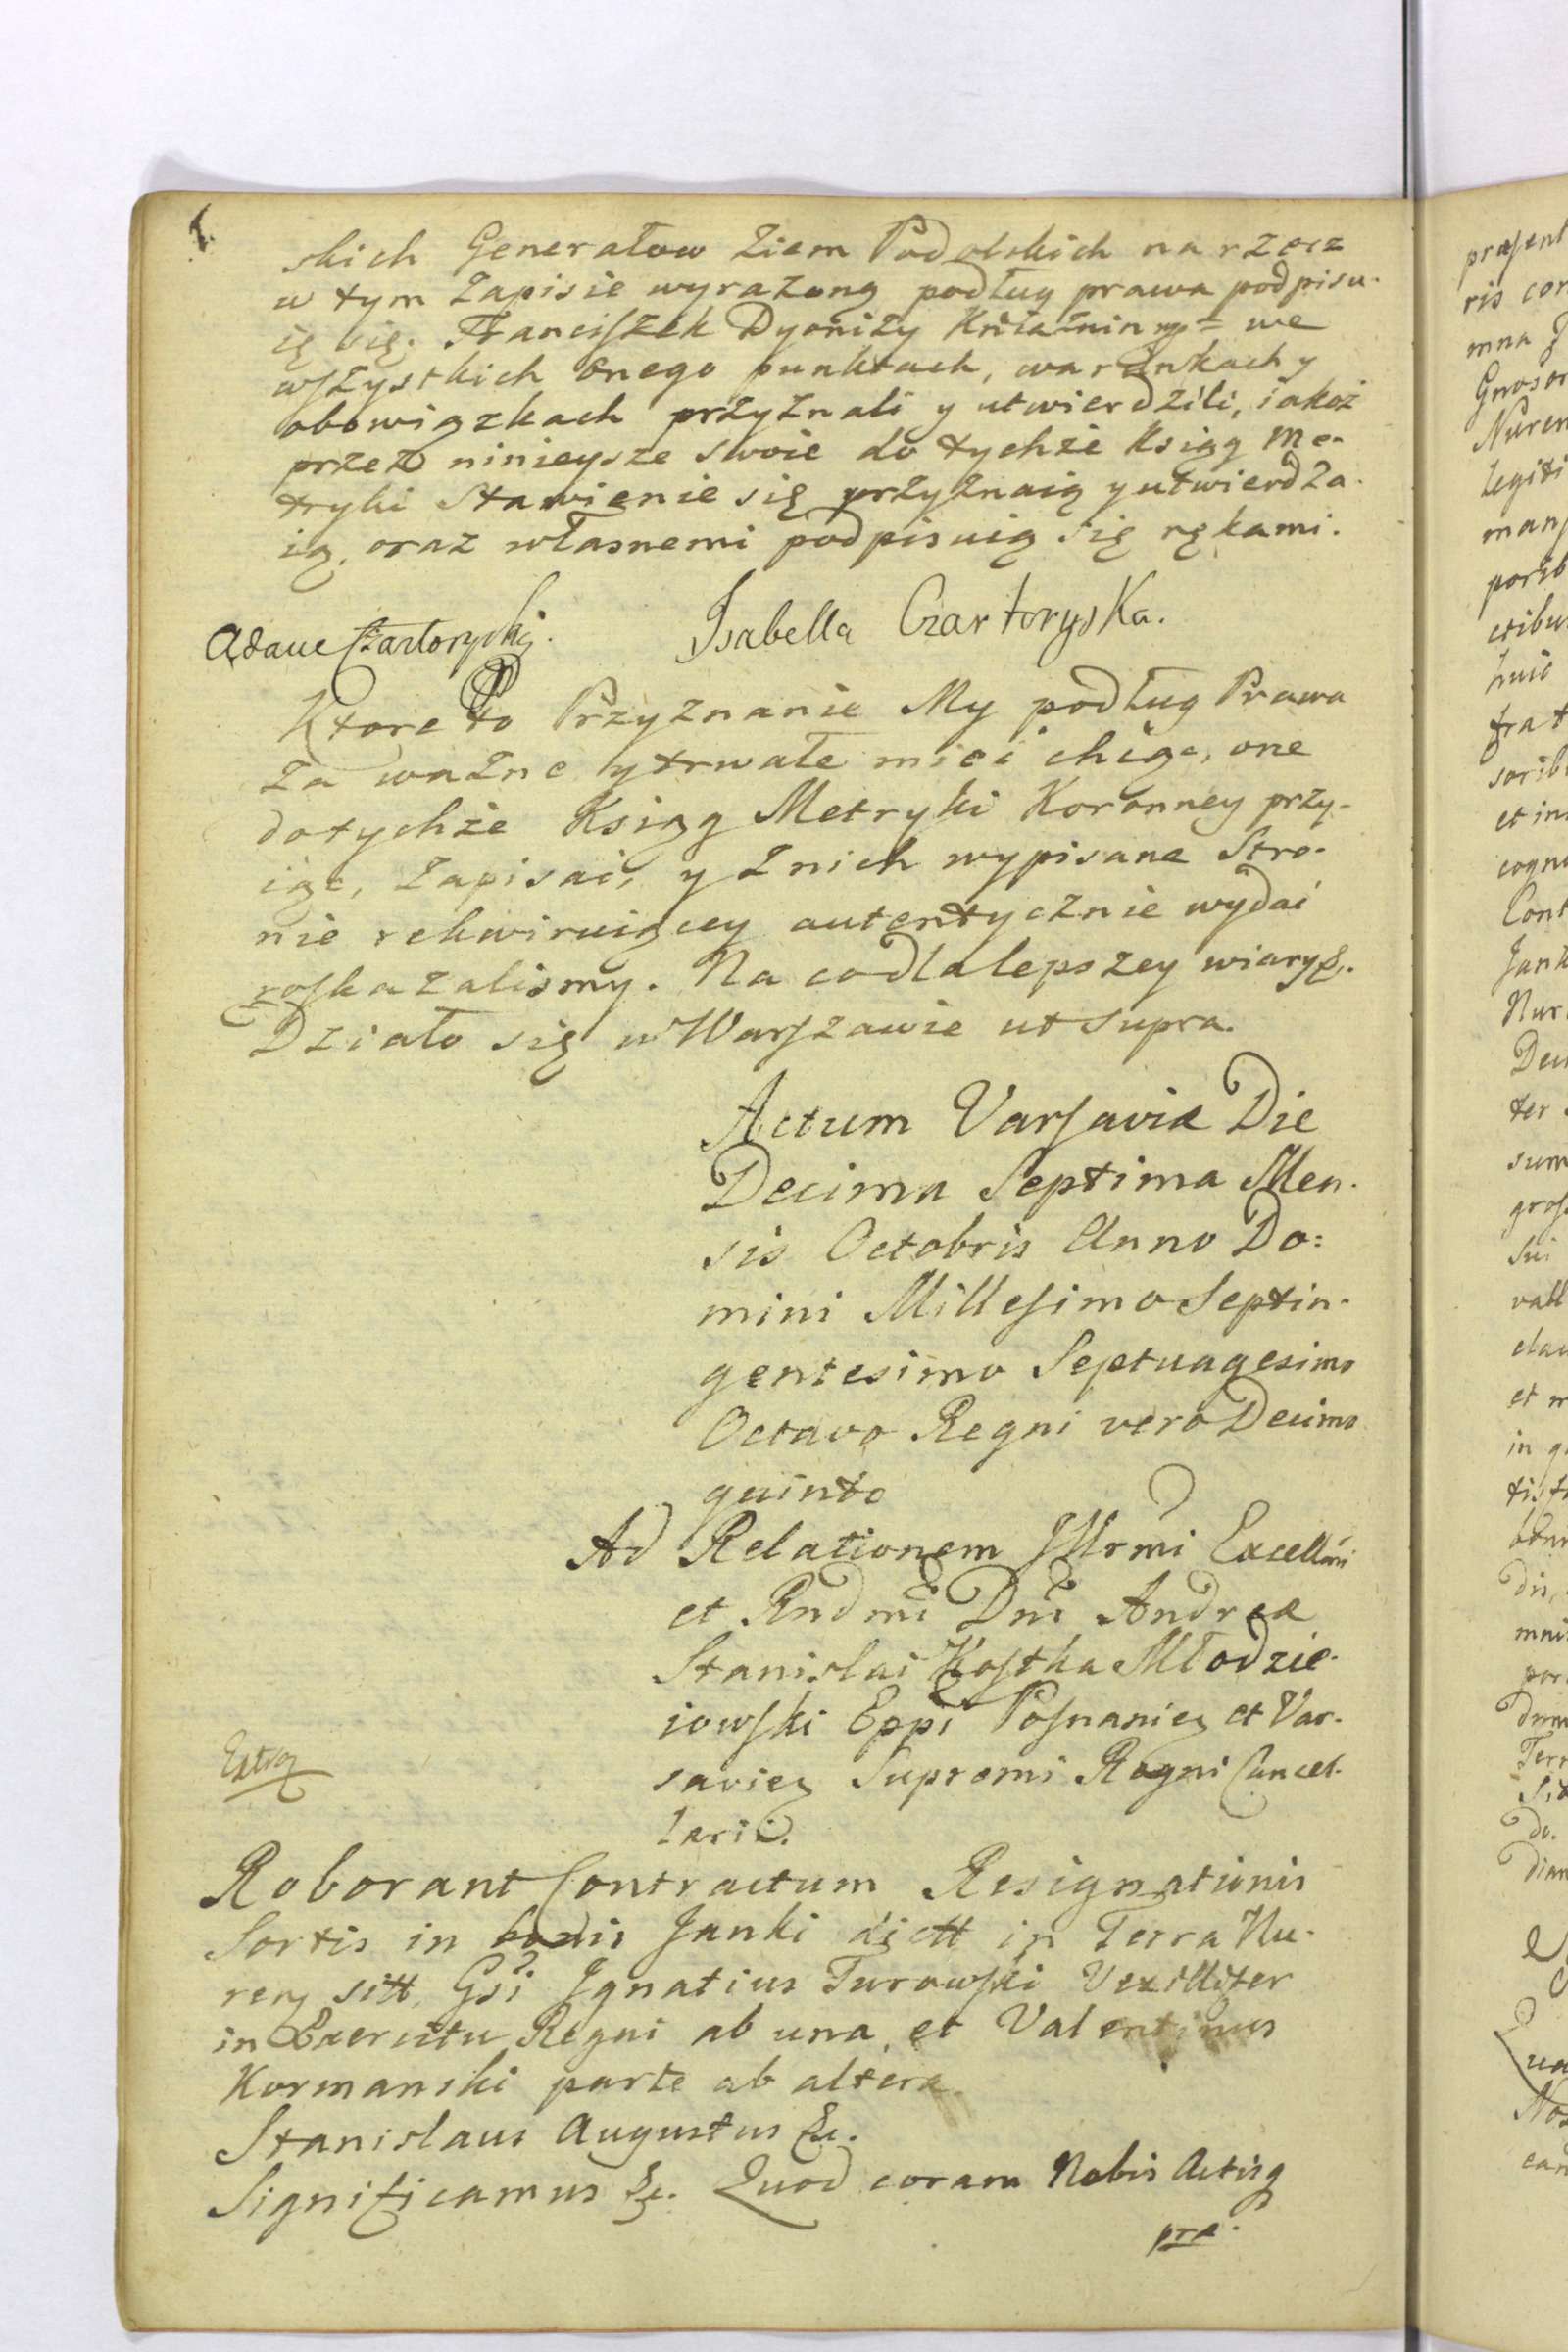 skich Generałow Ziem Podolskich na rzecz
w tym Zapisie wyrażoną podług prawa podpisu-
ię się. Franciſzek Dyoniży Kniaźnin = we
wſzystkich onego punktach, warunkach y
obowiązkach przyznali y utwierdzili, iakoż
przez ninieysze swoie do tychże Ksiąg Me-
tryki Stawienie się przyznaią y utwierdza-
ią, oraz własnemi podpisuią się rękami.
Adam Czartoryski. Isabella Czartoryska.
Ktore to Przyznanie My podług Prawa
za ważne y trwałe mieć chcąc, one
do tychże Ksiąg Metryki Koronney przy-
iąć, zapisać, y z nich wypisane Stro-
nie rekwiruiącey autentycznie wydać
roſkazalismy. Na co dla lepszey wiary &.
Działo się w Warſzawie ut supra.
Actum Varſaviæ Die
Decima Septima Men-
sis Octobris Anno Do=
mini Milleſimo Septin-
gentesimo Septuagesimo
Octavo Regni vero Decimo
quinto
Ad Relationem Jllrmi Excellmi
et Rndmi Dni Andreæ
Stanislai Koſtka Młodzie-
iowſki Eppi Poſnanieɜ et Var-
savieɜ Supremi Regni Cancel-
larii.
Roborant Contractum Resignationis
Sortis in bonis Janki dictt in Terra Nu-
renɜ sitt. Gsi Jgnatius Turowſki Vexillifer
in Exercitu Regni ab una et Valentinus
Kormanski parte ab altera.
Stanislaus Augustus &c.
Significamus &c. Quod coram Nobis Actisq
præ-
præsent
ris cor
mna
Gnosor
Nuren
legiti
manſ
porib
ctibu
huic
frat
sorib
et in
cogn
Cont
Jank
Nur
ter
sum
groſ
Sui
vall
clau
et
in